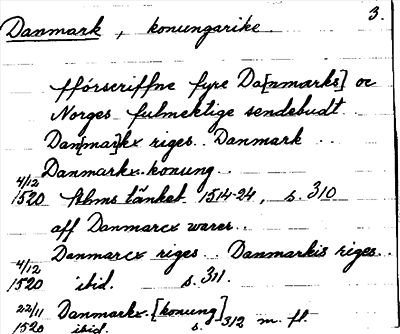 3.
Danmark, konungarike.
fförscriffne fyre Da[nmarks] oc
Norges fulmektige sendebudt.
Dan[mar]kx riges.. Danmark ..
Danmarkx. konung..
4/12 1520 Sthms tänkeb. 1514-24, s. 310
aff Danmarcx warer..
Danmarcx riges.. Danmarkis riges..
4/12 1520 ibid. s. 311.
Danmarkx. [konung]
22/11 1520 ibid. s. 312 m. fl.